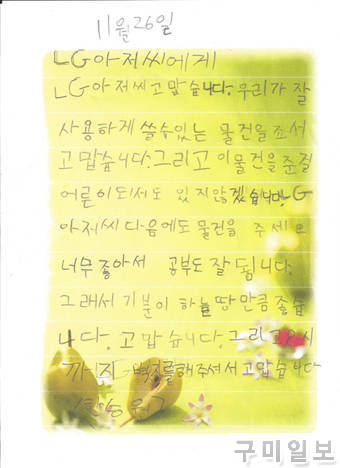 11월26일
LG아저씨에게
LG아저씨고맙습니다. 우리가 잘
사용하게 쓸수있는 물건을조서
고맙습니다.그리고 이물건을준걸
어른이되서도 있지않겠습니다. LG
아저씨 다음에도 물건을 주세요
너무좋아서 공부도잘됩니다.
그래서 기분이 하늘땅만큼좋습
니다. 고맙습니다. 그리고
까지 벽지를해주셔서고맙습니다
구미일보